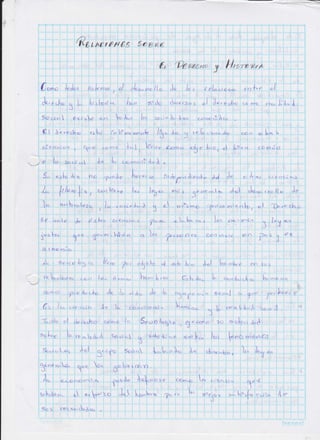 RELACIONES SOBRE
6. DERECHO y HISTORIA
Como todos el desarrollo de las relaciones entre el
derecho y la historia han sido diversos el derecho como realidad
social existe en todas las comunidades
El derecho está íntimamente ligado y relacionado con otras
ciencias, que como tal, tiene como objetivo, el bien común
y lo social de la comunidad.
Su estudio no puede hacerse independiente del de otras ciencias
La filosofía, contiene las leyes más generales del desarrollo de
la naturaleza, la sociedad y el mismo pensamiento, el Derecho
se vale de estas ciencias para elaborar las normas y leyes
justas que permitirán a las personas convivir en paz y en
armonía
La sociología tiene por objeto el estudio del hombre en sus
relaciones con los demás hombres. Estudia la conducta humana
como producto de la vida de la agrupación social a que pertenece
Es la ciencia de la convivencia humana y la realidad social.
Tanto el derecho como la Sociología, ejercen su
sobre la realidad social y estudian los fenómenos
Sociales del grupo social las leyes
generales que los gobiernan.
La economía puede definirse como la ciencia que
estudia el esfuerzo del hombre para la mejor satisfacción de
sus necesidades.